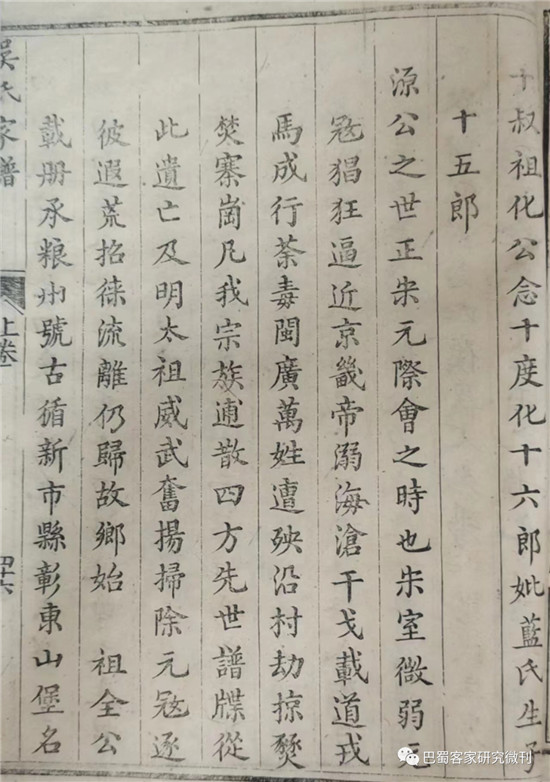 十叔祖化公念十度化十六郎妣藍氏生子
十五郎
源公之世正宋元際會之時也宋室微弱
寇猖狂逼近京畿帝溺海滄干戈載道戎
馬成行荼毒閩廣萬姓遭殃沿村劫掠燹
焚寨崗凡我宗族逋散四方先世譜牒從
此遺亡及明太祖威武奮揚掃除元寇逐
彼遐荒招徠流離仍歸故鄉始 祖全公
載册承粮州號古循新市縣彰東山堡名
吳氏家譜
上卷
四十六
巴蜀客家研究微刊